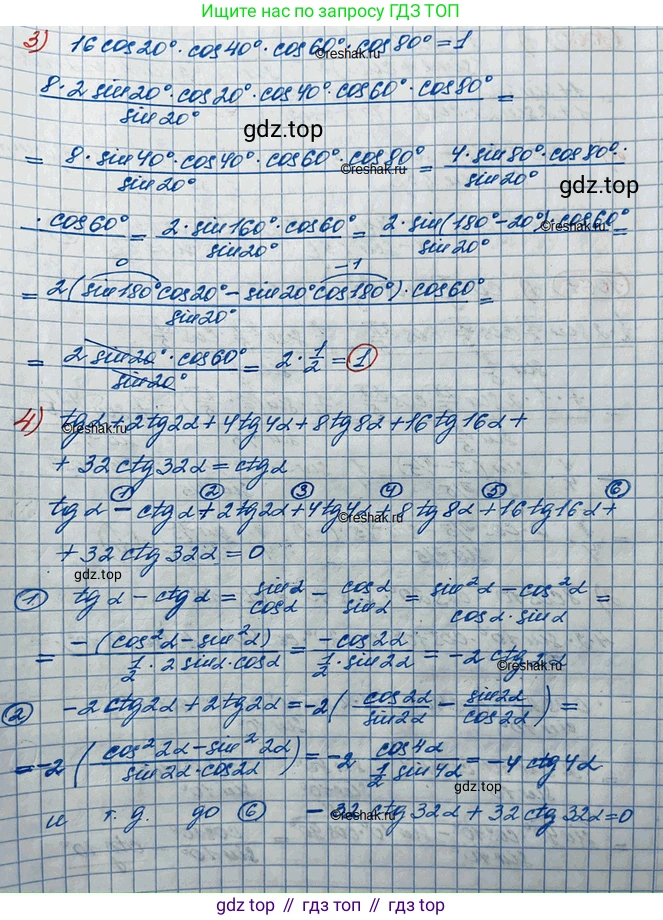 Найти продолжение по запросу ГДЗ ТОП
3) 16 cos20°·cos40°·cos60°·cos80°=1
©reshak.ru
8·2 sin20°·cos20°·cos40°·cos60°·cos80° / sin20° =
gdz.top
= 8·sin40°·cos40°·cos60°·cos80° / sin20° = 4·sin80°·cos80°· / sin20°
©reshak.ru
gdz.top
·cos60° / = 2·sin160°·cos60° / sin20° = 2·sin(180°-20°)·cos60° / sin20° =
©reshak.ru
0 -1
= 2(sin180°cos20°-sin20°cos180°)·cos60° / sin20° =
= 2 sin20°·cos60° / sin20° = 2·1/2 = 1
4) tgα+2tg2α+4tg4α+8tg8α+16tg16α+
©reshak.ru
+32ctg32α=ctgα
1 2 3 4 5 6
tgα-ctgα+2tg2α+4tg4α+8tg8α+16tg16α+
©reshak.ru
+32ctg32α=0
gdz.top
1 tgα-ctgα = sinα/cosα - cosα/sinα = sin²α-cos²α / cosα·sinα =
= -(cos²α-sin²α) / 1/2·2sinα·cosα = -cos2α / 1/2·sin2α = -2ctg2α
©reshak.ru
2 -2ctg2α+2tg2α=-2(cos2α/sin2α - sin2α/cos2α) =
=-2(cos²2α-sin²2α / sin2α·cos2α) = -2 cos4α / 1/2 sin4α = -4ctg4α
gdz.top
и т.д. до 6 -32ctg32α+32ctg32α=0
©reshak.ru
gdz.top // гдз топ // гдз.top